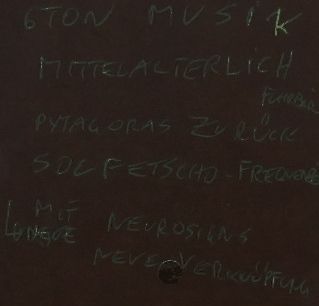 6TON MUSIK
MITTELALTERLICH
PYTAGORAS ZURÜCK
SOLFETSCHO-FREQUENZ
MIT NEUROSIGNS
NEUE VERKNÜPFUNG